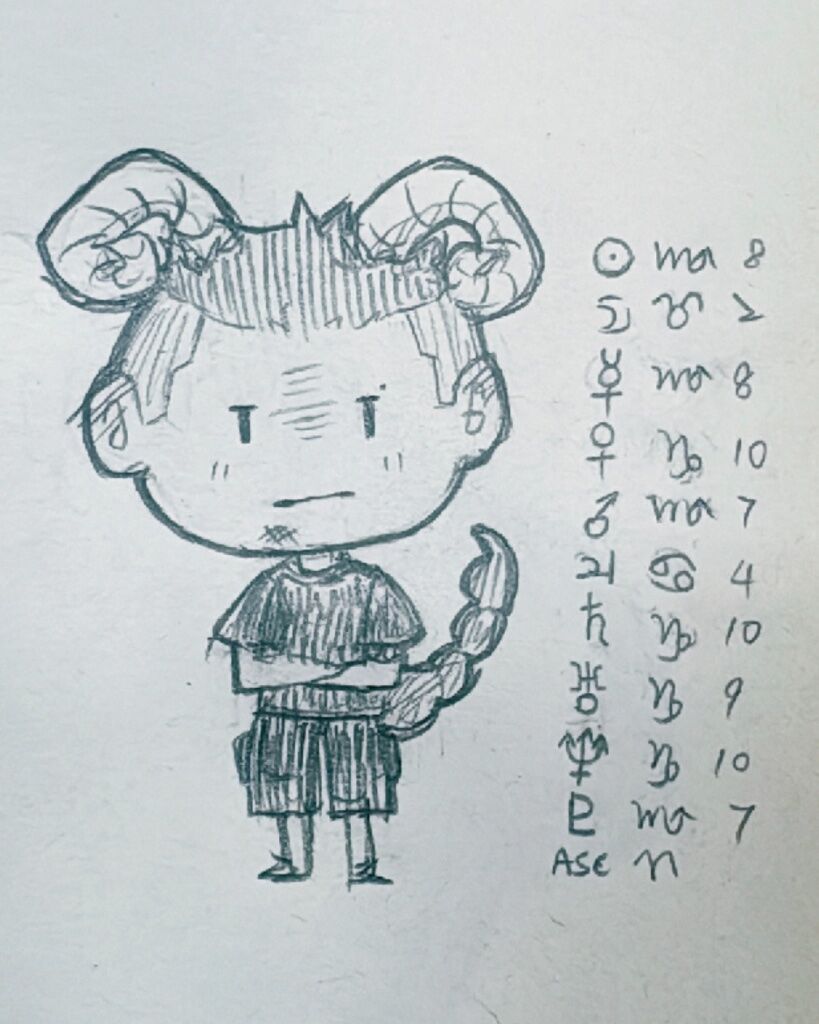 ☉ ♏ 8
☽ ♉ 2
☿ ♏ 8
♀ ♑ 10
♂ ♏ 7
♃ ♋ 4
♄ ♑ 10
♅ ♑ 9
♆ ♑ 10
♇ ♏ 7
ASC ♈